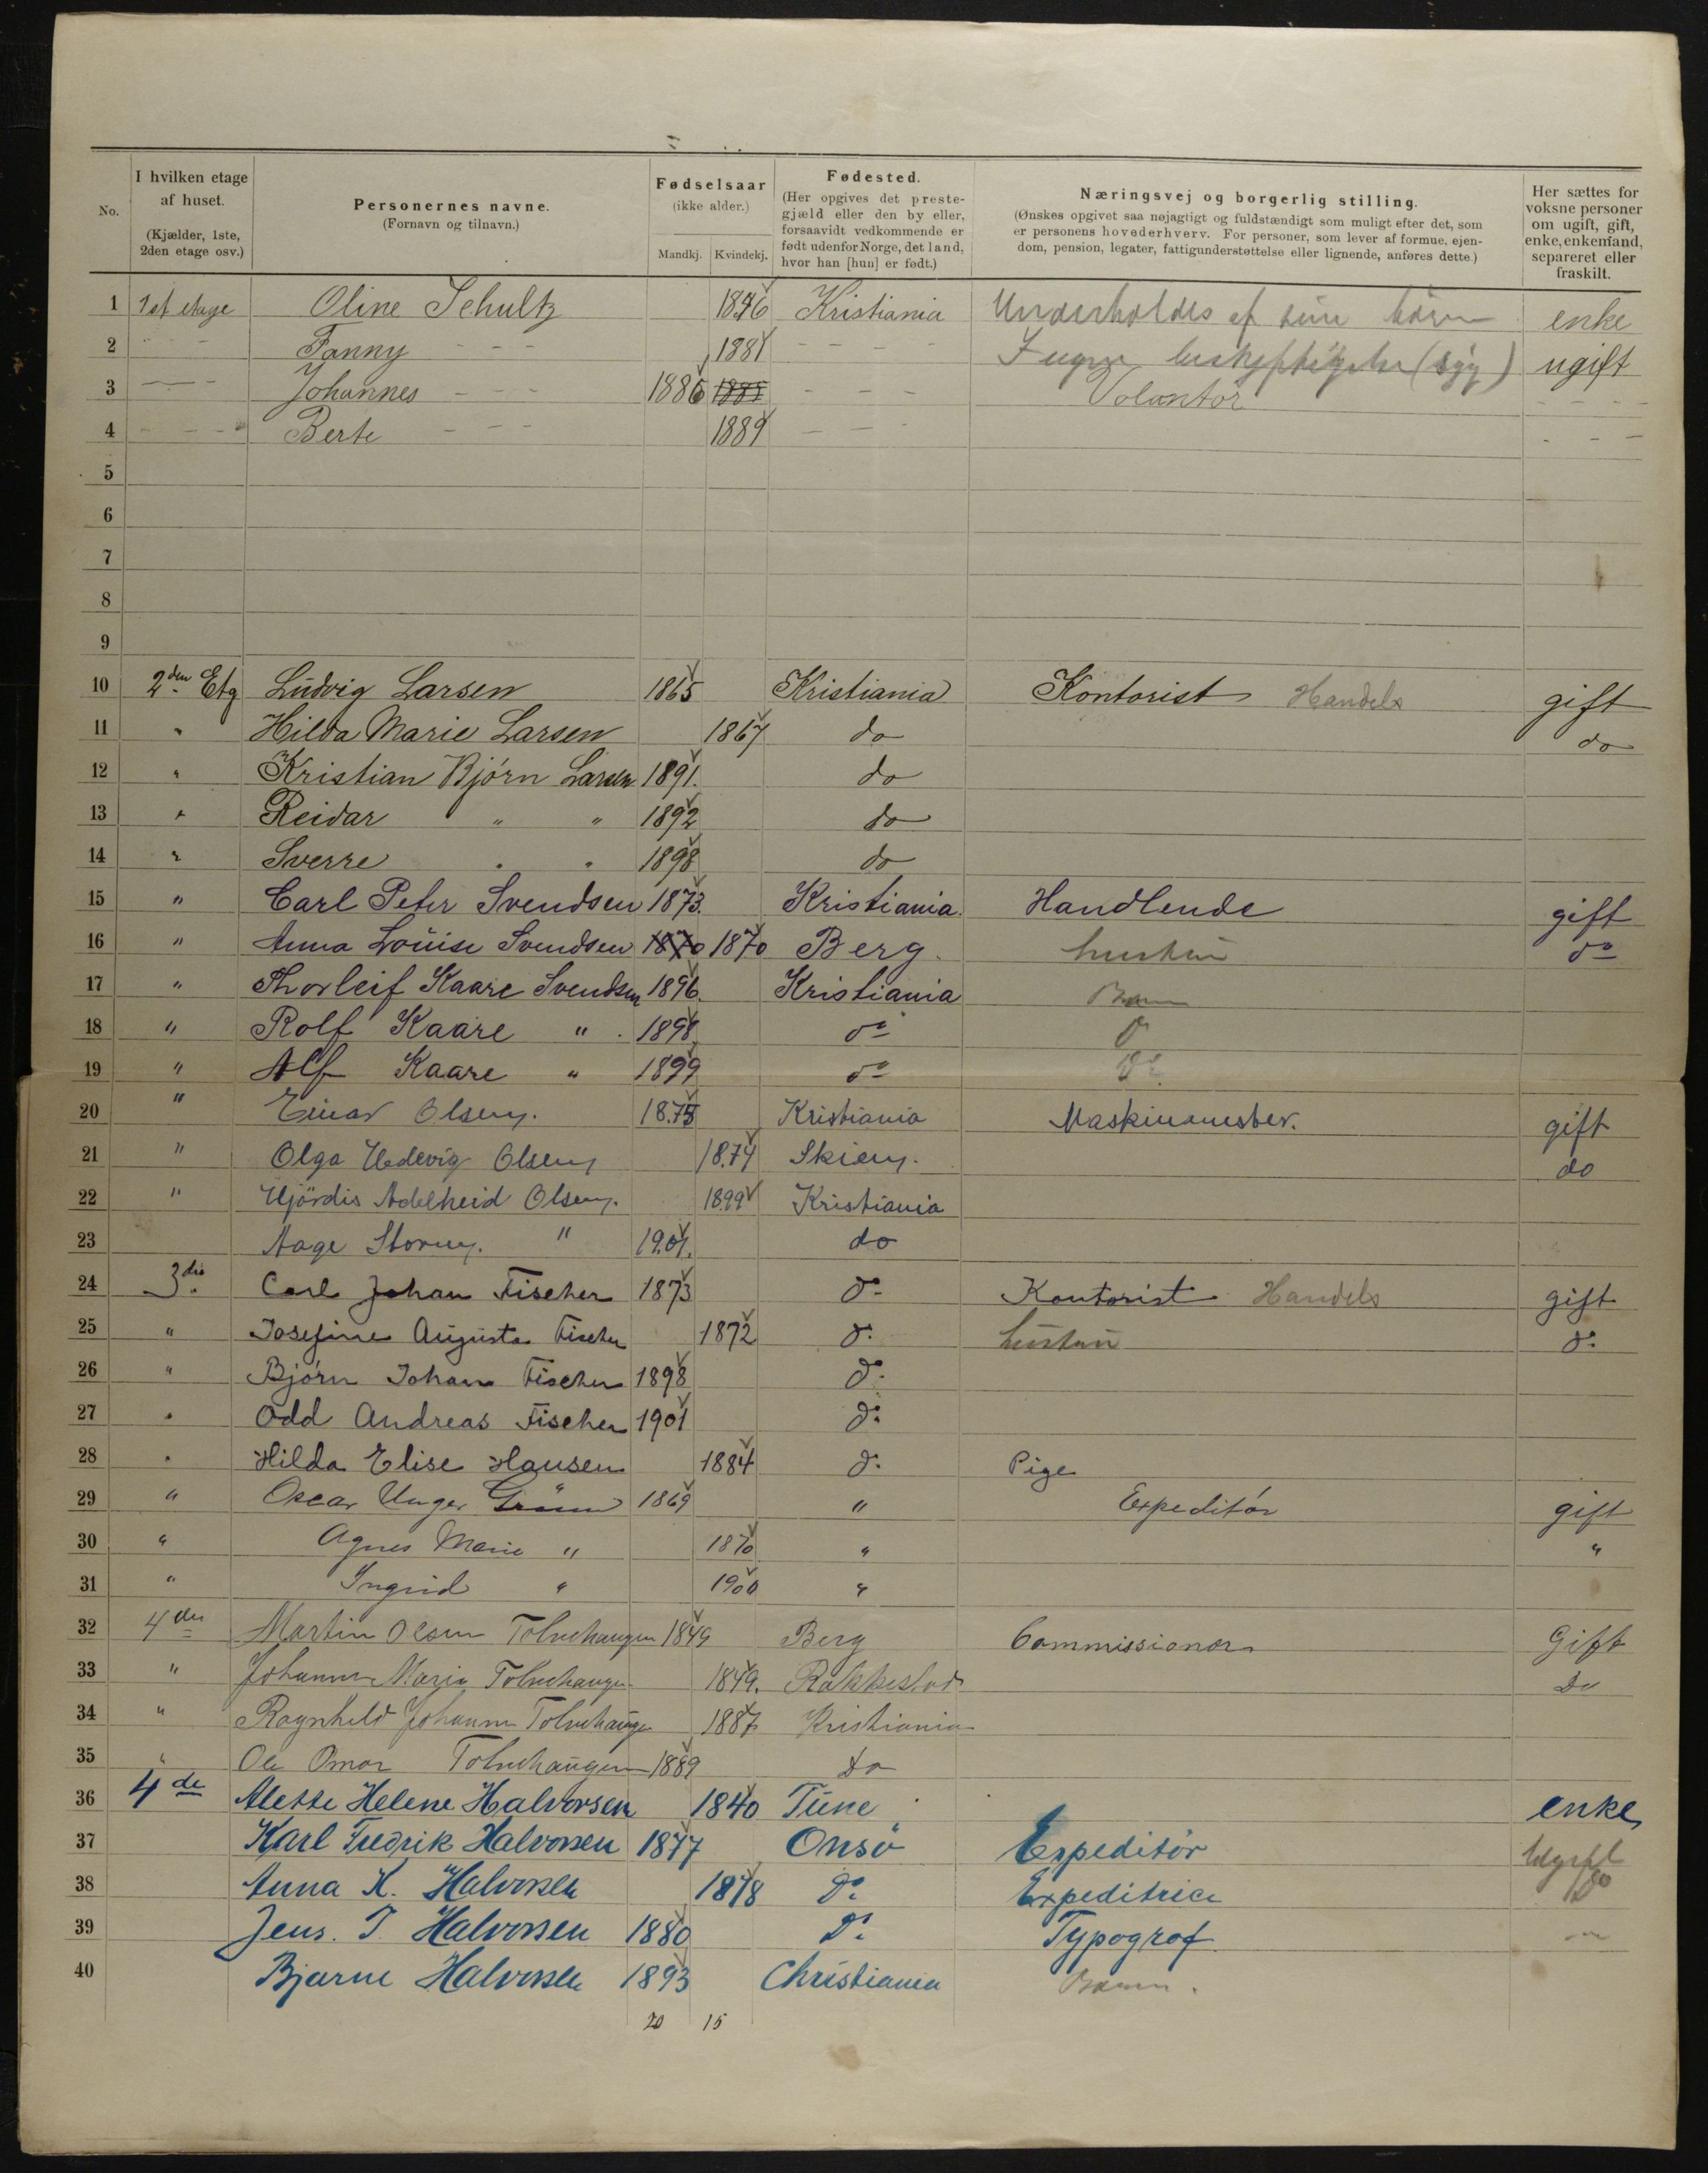 No.
I hvilken etage af huset. (Kjælder, 1ste, 2den etage osv.)
Personernes navne. (Fornavn og tilnavn.)
Fødselsaar (ikke alder.) Mandkj. Kvindekj.
Fødested. (Her opgives det prestegjæld eller den by eller, forsaavidt vedkommende er født udenfor Norge, det land, hvor han [hun] er født.)
Næringsvej og borgerlig stilling. (Ønskes opgivet saa nøjagtigt og fuldstændigt som muligt efter det, som er personens hovederhverv. For personer, som lever af formue, ejendom, pension, legater, fattigunderstøttelse eller lignende, anføres dette.)
Her sættes for voksne personer om ugift, gift, enke, enkemand, separeret eller fraskilt.
1 1st etage Oline Schultz 1846 Kristiania Underholdes af sine børn enke
2 - - - Fanny - - - 1881 - - - - Ingen beskjæftigelse (syg) ugift
3 - - - Johannes - - - 1886 1885 - - - Volontør - - - -
4 - - - Berte - - - 1889 - - - - - -
5
6
7
8
9
10 2den Etg Ludvig Larsen 1865 Kristiania Kontorist Handels gift
11 " Hilda Marie Larsen 1867 do do
12 " Kristian Bjórn Larsen 1891. do
13 " Reidar " " 1892 do
14 " Sverre " " 1898 do
15 " Carl Peter Svendsen 1873. Kristiania. Handlende gift
16 " Anna Louise Svendsen 1870 1870 Berg. hustru do
17 " Thorleif Kaare Svendsen 1896. Kristiania Barn
18 " Rolf Kaare " 1898. do do
19 " Alf Kaare " 1899 do do
20 " Einar Olsen. 1875 Kristiania Maskinmester. gift
21 " Olga Hedevig Olsen 1874 Skien. do
22 " Hjördis Adelheid Olsen. 1899 Kristiania
23 Aage Storm. " 1901. do
24 3die Carl Johan Fischer 1873 do Kontorist Handels gift
25 " Josefine Augusta Fischer 1872 do hustru do
26 " Bjórn Johan Fischer 1898 do
27 " Odd Andreas Fischer 1901 do
28 " Hilda Elise Hansen 1884 do Pige
29 " Oscar Unger 1869 " Expeditór gift
30 " Agnes Marie " 1870 " "
31 " Ingrid " 1900 "
32 4de Martin Olsen Tolvehaugen 1849 Berg Commissionær Gift
33 " Johanne Marie Tolvehaugen 1849. Rakkestad Do
34 " Ragnhild Johanne Tolvehaugen 1887 Kristiania
35 " Ole Omar Tolvehaugen 1889 Do
36 4de Alette Helene Halvorsen 1840 Tune enke
37 Karl Fredrik Halvorsen 1877 Onsö Expeditör Ugift
38 Anna K. Halvorsen 1878 Do Expeditrice Do
39 Jens. T. Halvorsen 1880 Do Typograf
40 Bjarne Halvorsen 1893 Christiania Barn.
20 15